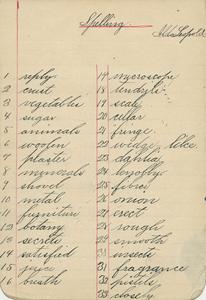 Spelling.
Aldo Leopold
1 reply
2 crust
3 vegetables
4 sugar
5 animals
6 woolen
7 plaster
8 minerals
9 shovel
10 metal
11 furniture
12 botany
13 secrete
14 satisfied
15 juice
16 breath
17 microscope
18 tendrils
19 scaly
20 cellar
21 fringe
22 wedge like
23 dahlia
24 
25 fibres
26 onion
27 erect
28 rough
29 smooth
30 insects
31 fragrance
32 pistils
33 closely